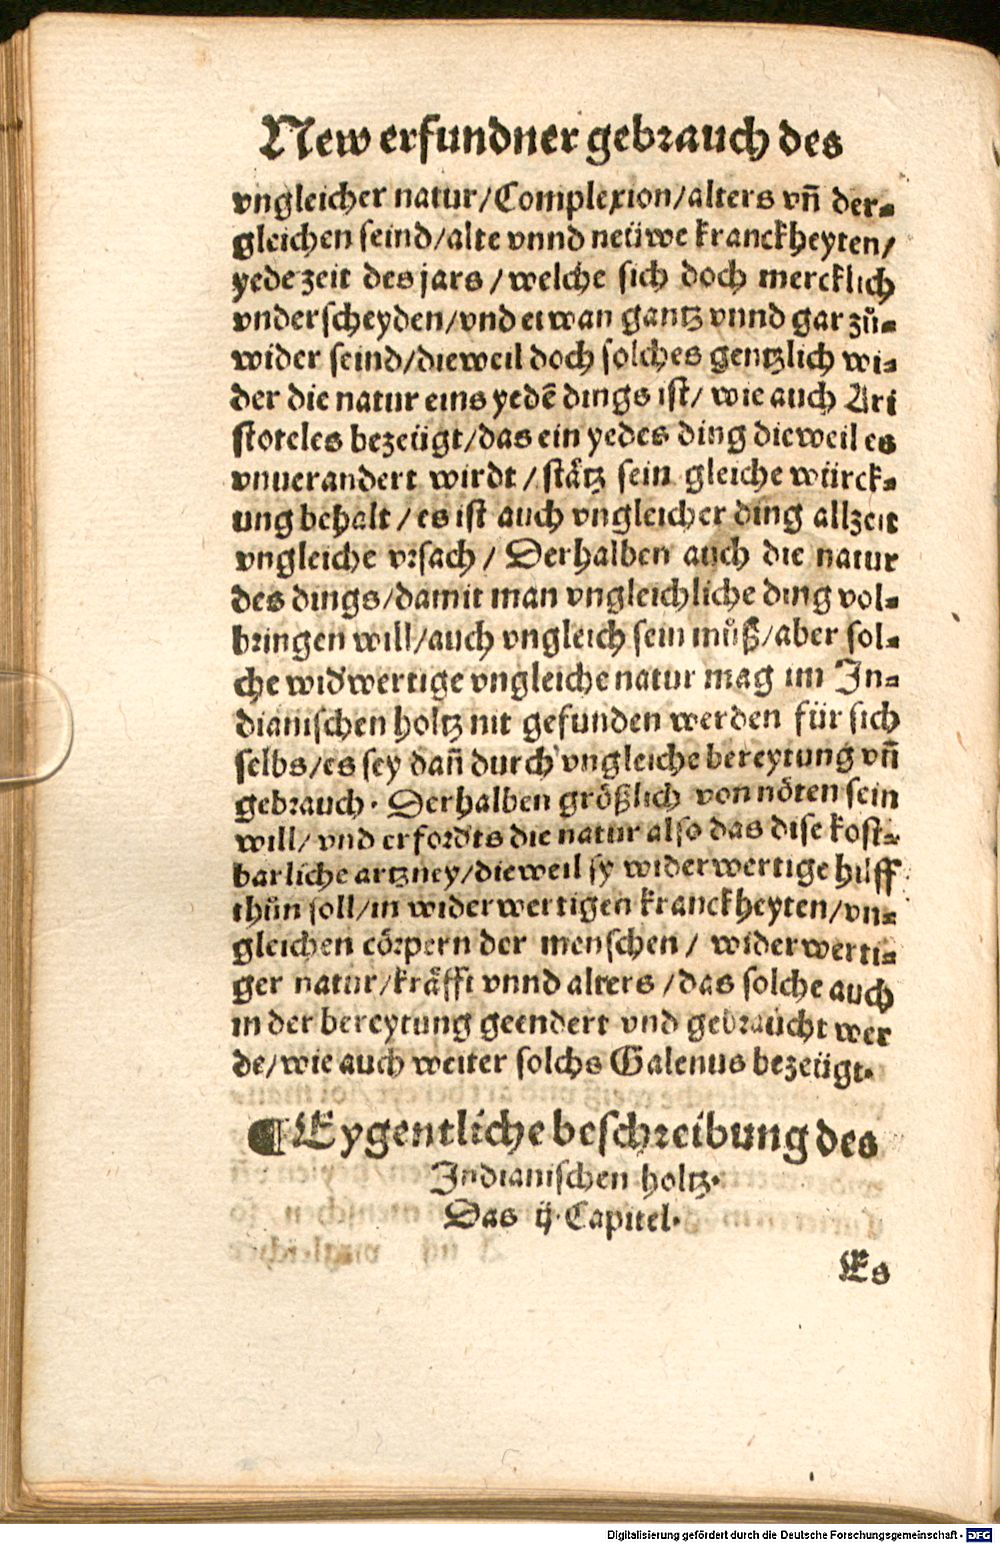 New erfundner gebrauch des
vngleicher natur/Complexion/alters vñ der-
gleichen seind/alte vnnd neüwe kranckheyten/
yede zeit des jars/welche sich doch mercklich
vnderscheyden/vnd etwan gantz vnnd gar zů-
wider seind/dieweil doch solches gentzlich wi-
der die natur eins yedẽ dings ist/ wie auch Ari
stoteles bezeügt/das ein yedes ding dieweil es
vnuerandert wirdt/ståtz sein gleiche würck-
ung behalt/es ist auch vngleicher ding allzeit
vngleiche vrsach/ Derhalben auch die natur
des dings/damit man vngleichliche ding vol-
bringen will/auch vngleich sein můß/aber sol-
che wid'wertige vngleiche natur mag im In-
dianischen holtz nit gefunden werden für sich
selbs/es sey dañ durch vngleiche bereytung vñ
gebrauch. Derhalben größlich von nöten sein
will/ vnd erford'ts die natur also das dise kost-
barliche artzney/dieweil sy widerwertige hilff
thůn soll/in widerwertigen kranckheyten/vn-
gleichen cörpern der menschen/ widerwerti-
ger natur/kräfft vnnd alters/das solche auch
in der bereytung geendert vnd gebraucht wer
de/wie auch weiter solchs Galenus bezeügt.
¶Eygentliche beschreibung des
Indianischen holtz.
Das ij. Capitel.
Es
Digitalisierung gefördert durch die Deutsche Forschungsgemeinschaft - DFG